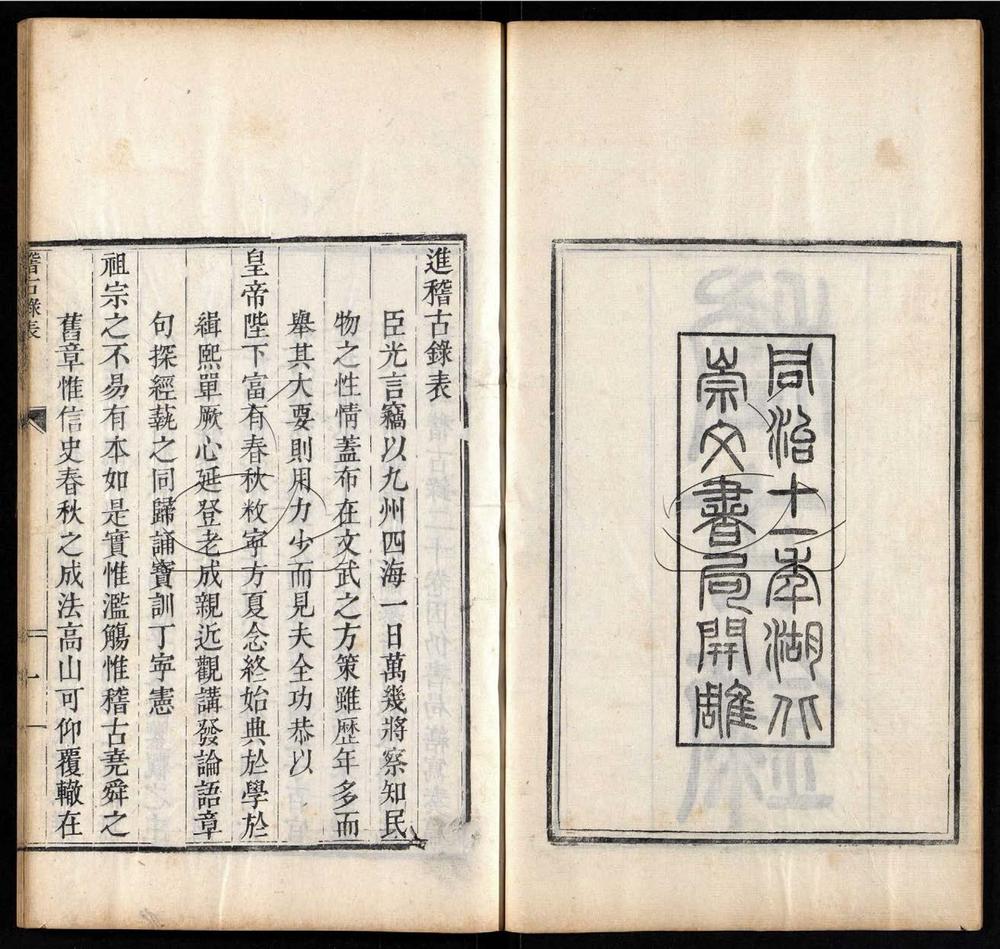 同治十一年湖北
崇文書局開雕
進稽古錄表
臣光言竊以九州四海一日萬幾將察知民
物之性情蓋布在文武之方策雖歷年多而
舉其大要則用力少而見夫全功恭以
皇帝陛下富有春秋敉寧方夏念終始典於學於
緝熙單厥心延登老成親近觀講發論語章
句探經蓺之同歸誦寶訓丁寧憲
祖宗之不易有本如是實惟濫觴惟稽古堯舜之
舊章惟信史春秋之成法高山可仰覆轍在
稽古錄表
一